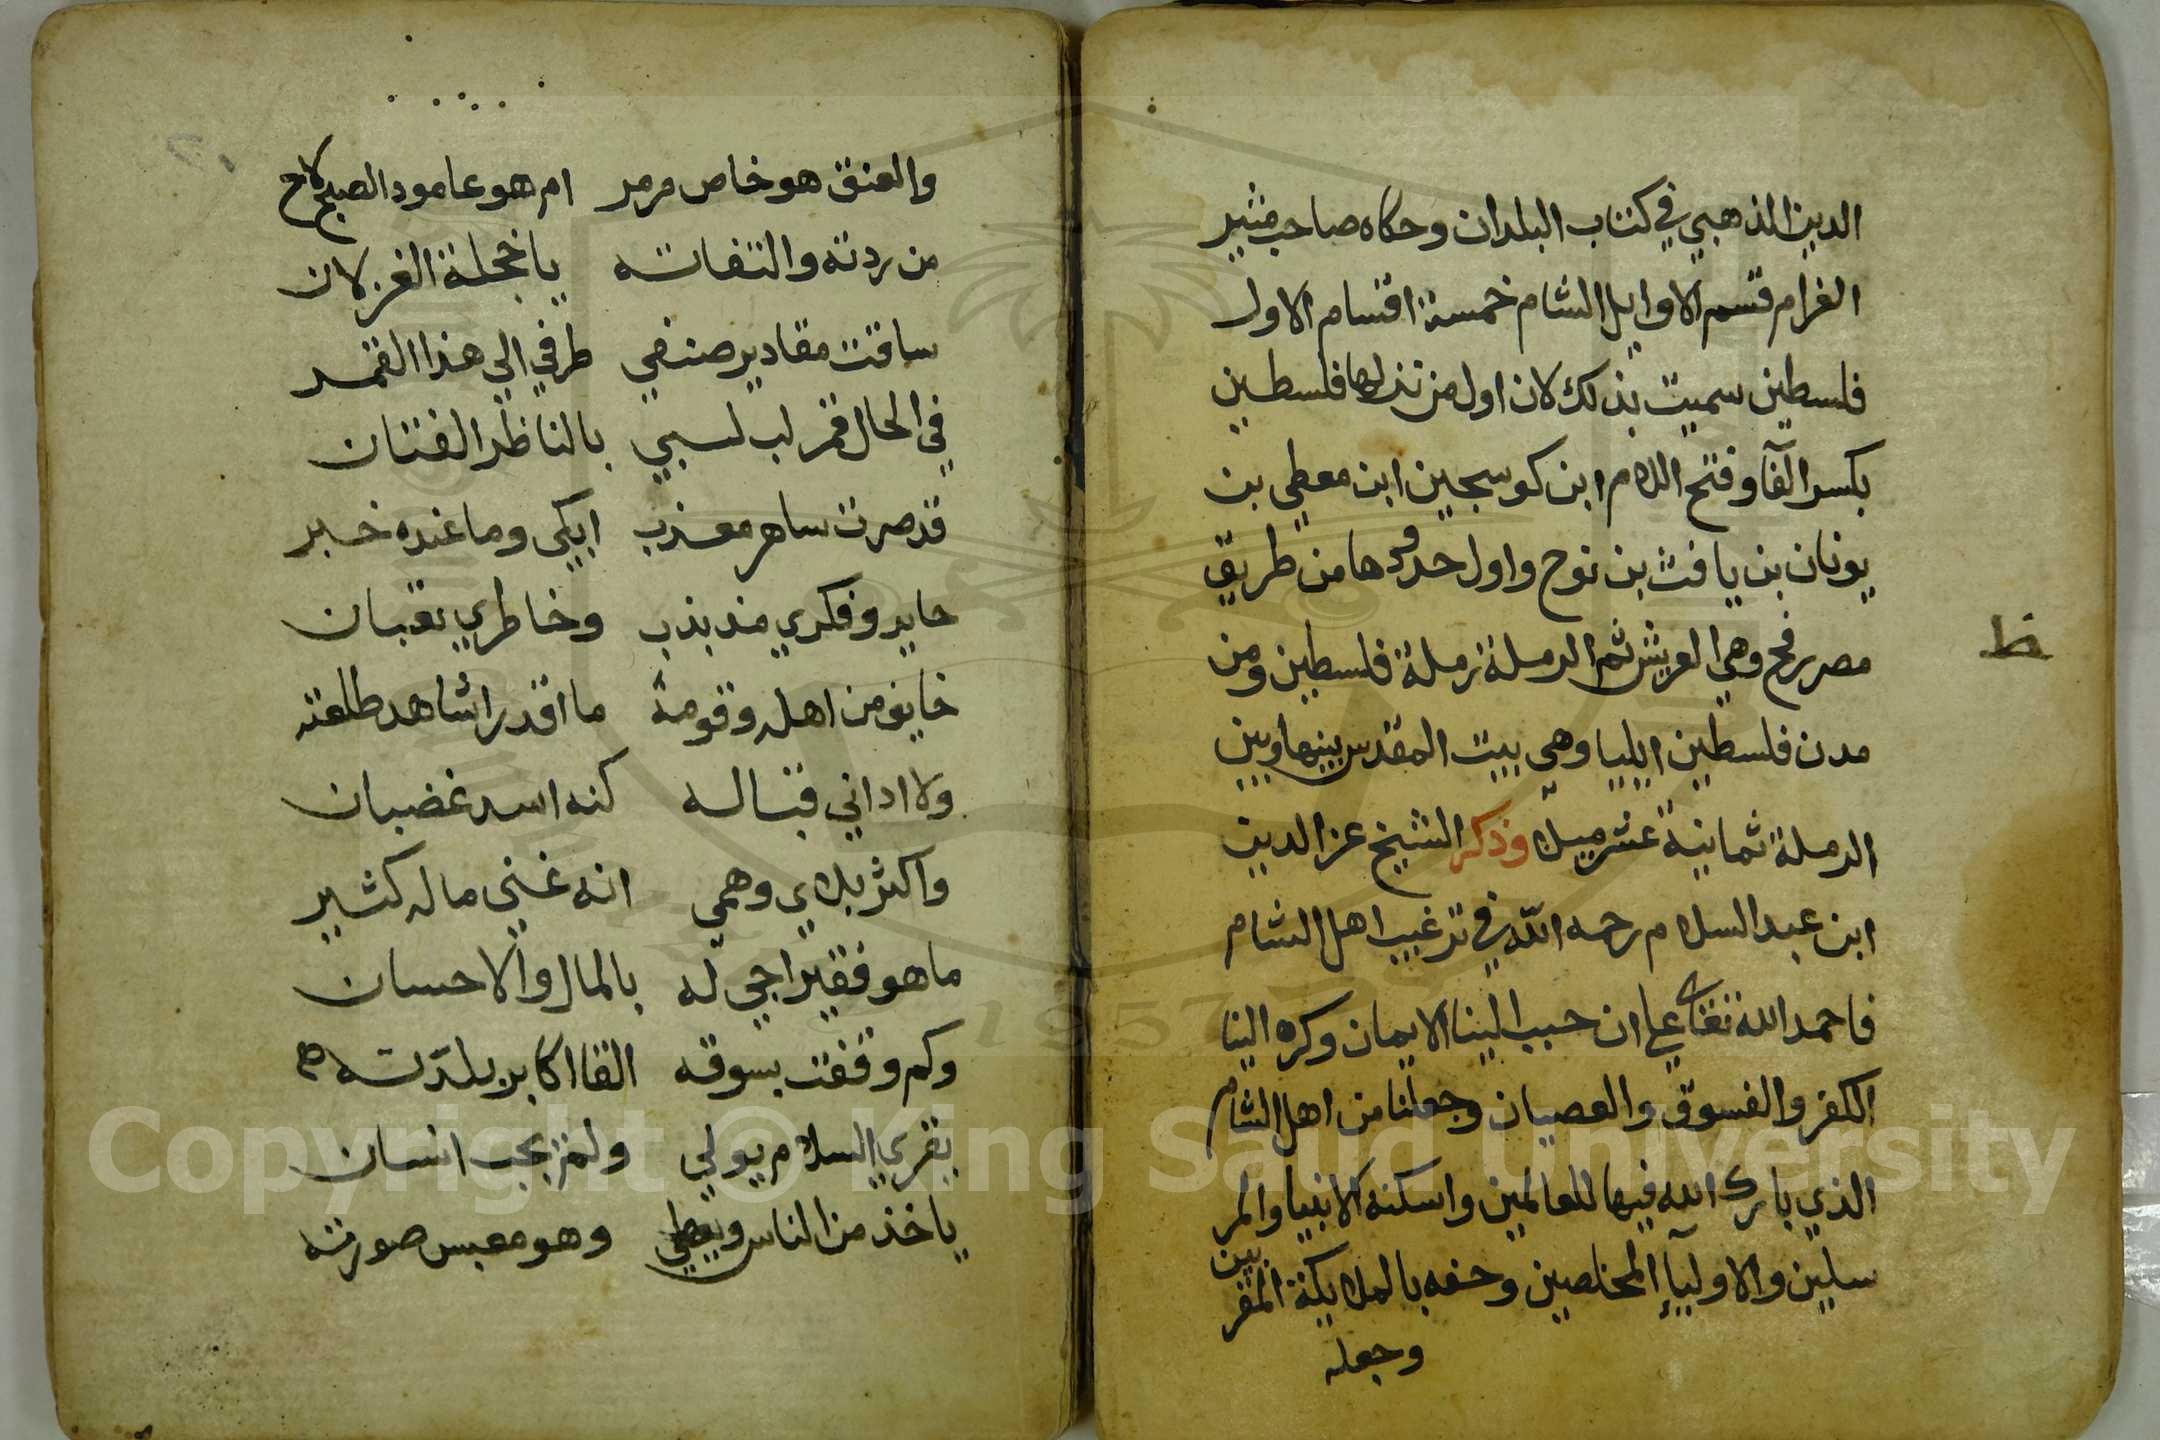 الدين الذهبي في كتاب البلدان وحكاه صاحب مثير
الغرام قسم الاوايل الشام خمسة اقسام الاول
فلسطين سميت بذلك لان اول من نزلها فلسطين
بكسر الفآ وفتح اللام ابن كوسجين ابن معطي بن
يونان بن يافث بن نوح واول حدودها من طريق
مصر رفح وهي العريش ثم الرملة رملة فلسطين ومن
ط
مدن فلسطين ايليا وهي بيت المقدس بينها وبين
الرملة ثمانية عشر ميلا وذكر الشيخ عز الدين
ابن عبد السلام رحمه الله في ترغيب اهل الشام
فاحمد الله تعالى علي ان حبب الينا الايمان وكره الينا
الكفر والفسوق والعصيان وجعلنا من اهل الشام
الذي بارك الله فيها للعالمين واسكنه الانبيا والمر
سلين والاوليآء المخلصين وحفه بالملايكة المقربين
وجعله
والعنق هو خاص مرمر ام هو عامود الصبح لاح
من ردته والتفاته يا خجلة الغزلان
ساقت مقادير صنفي طرفي الي هذا القمر
في الحال قمر لب لسبي بالناظر الفتان
قد صرت ساهر معذب ابكي وما عنده خبر
حاير وفكري مذبذب وخاطري تعبان
خايف من اهله وقومه ما اقدر اشاهد طلعته
ولا اداني قباله كنه اسد غضبان
واكثر بلاي وهمي انه غني ماله كثير
ما هو فقير اجي له بالمال والاحسان
وكم وقفت بسوقه القا اكابر بلدته هم
يقري السلام يولي ولم يجب انسان
ياخذ من الناس ويعطي وهو معبس صورته
Copyright © King Saud University
1957